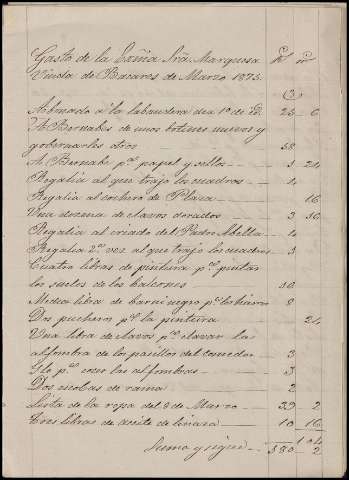 Gasto de la Exma Sra. Marquesa
Viuda de Bacares de Marzo 1875.
Rl mr
(3)
Abonado á la labandera dia 1º de id. 25 - 6
A Bernabes de unos botines nuevos y
gobernarles otros 58
A Bernabé pª papel y sellos - 3 24
Regalia al que trajo los cuadros - 4
Regalia al cochero de Plaza - 16
Una docena de clavos dorados 3 30
Regalia al criado del Pastor Abella - 4
Regalia 2ª vez al que trajo los cuadros - 3
Cuatro libras de pintura pª pintar
los suelos de los balcones - 30
Media libra de barniz negro pª los hierros 8
Dos pucheros pª la pintura 24
Una libra de clavos pª clavar la
alfombra de los pasillos del comedor - 3
Ylo pª coser las alfombras - 3
Dos escobas de rama 2
Lista de la ropa del 8 de Marzo - 39 - 2
Tres libras de aceite de linaza - 10 16
104
Suma y sigue - 2